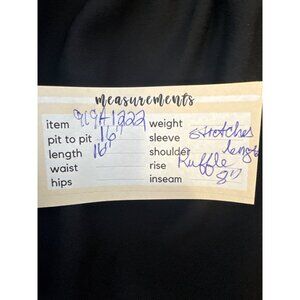 measurements
item 91941222 weight
pit to pit 16" sleeve Stretches
length 16" shoulder length
waist rise Ruffle
hips inseam 8"